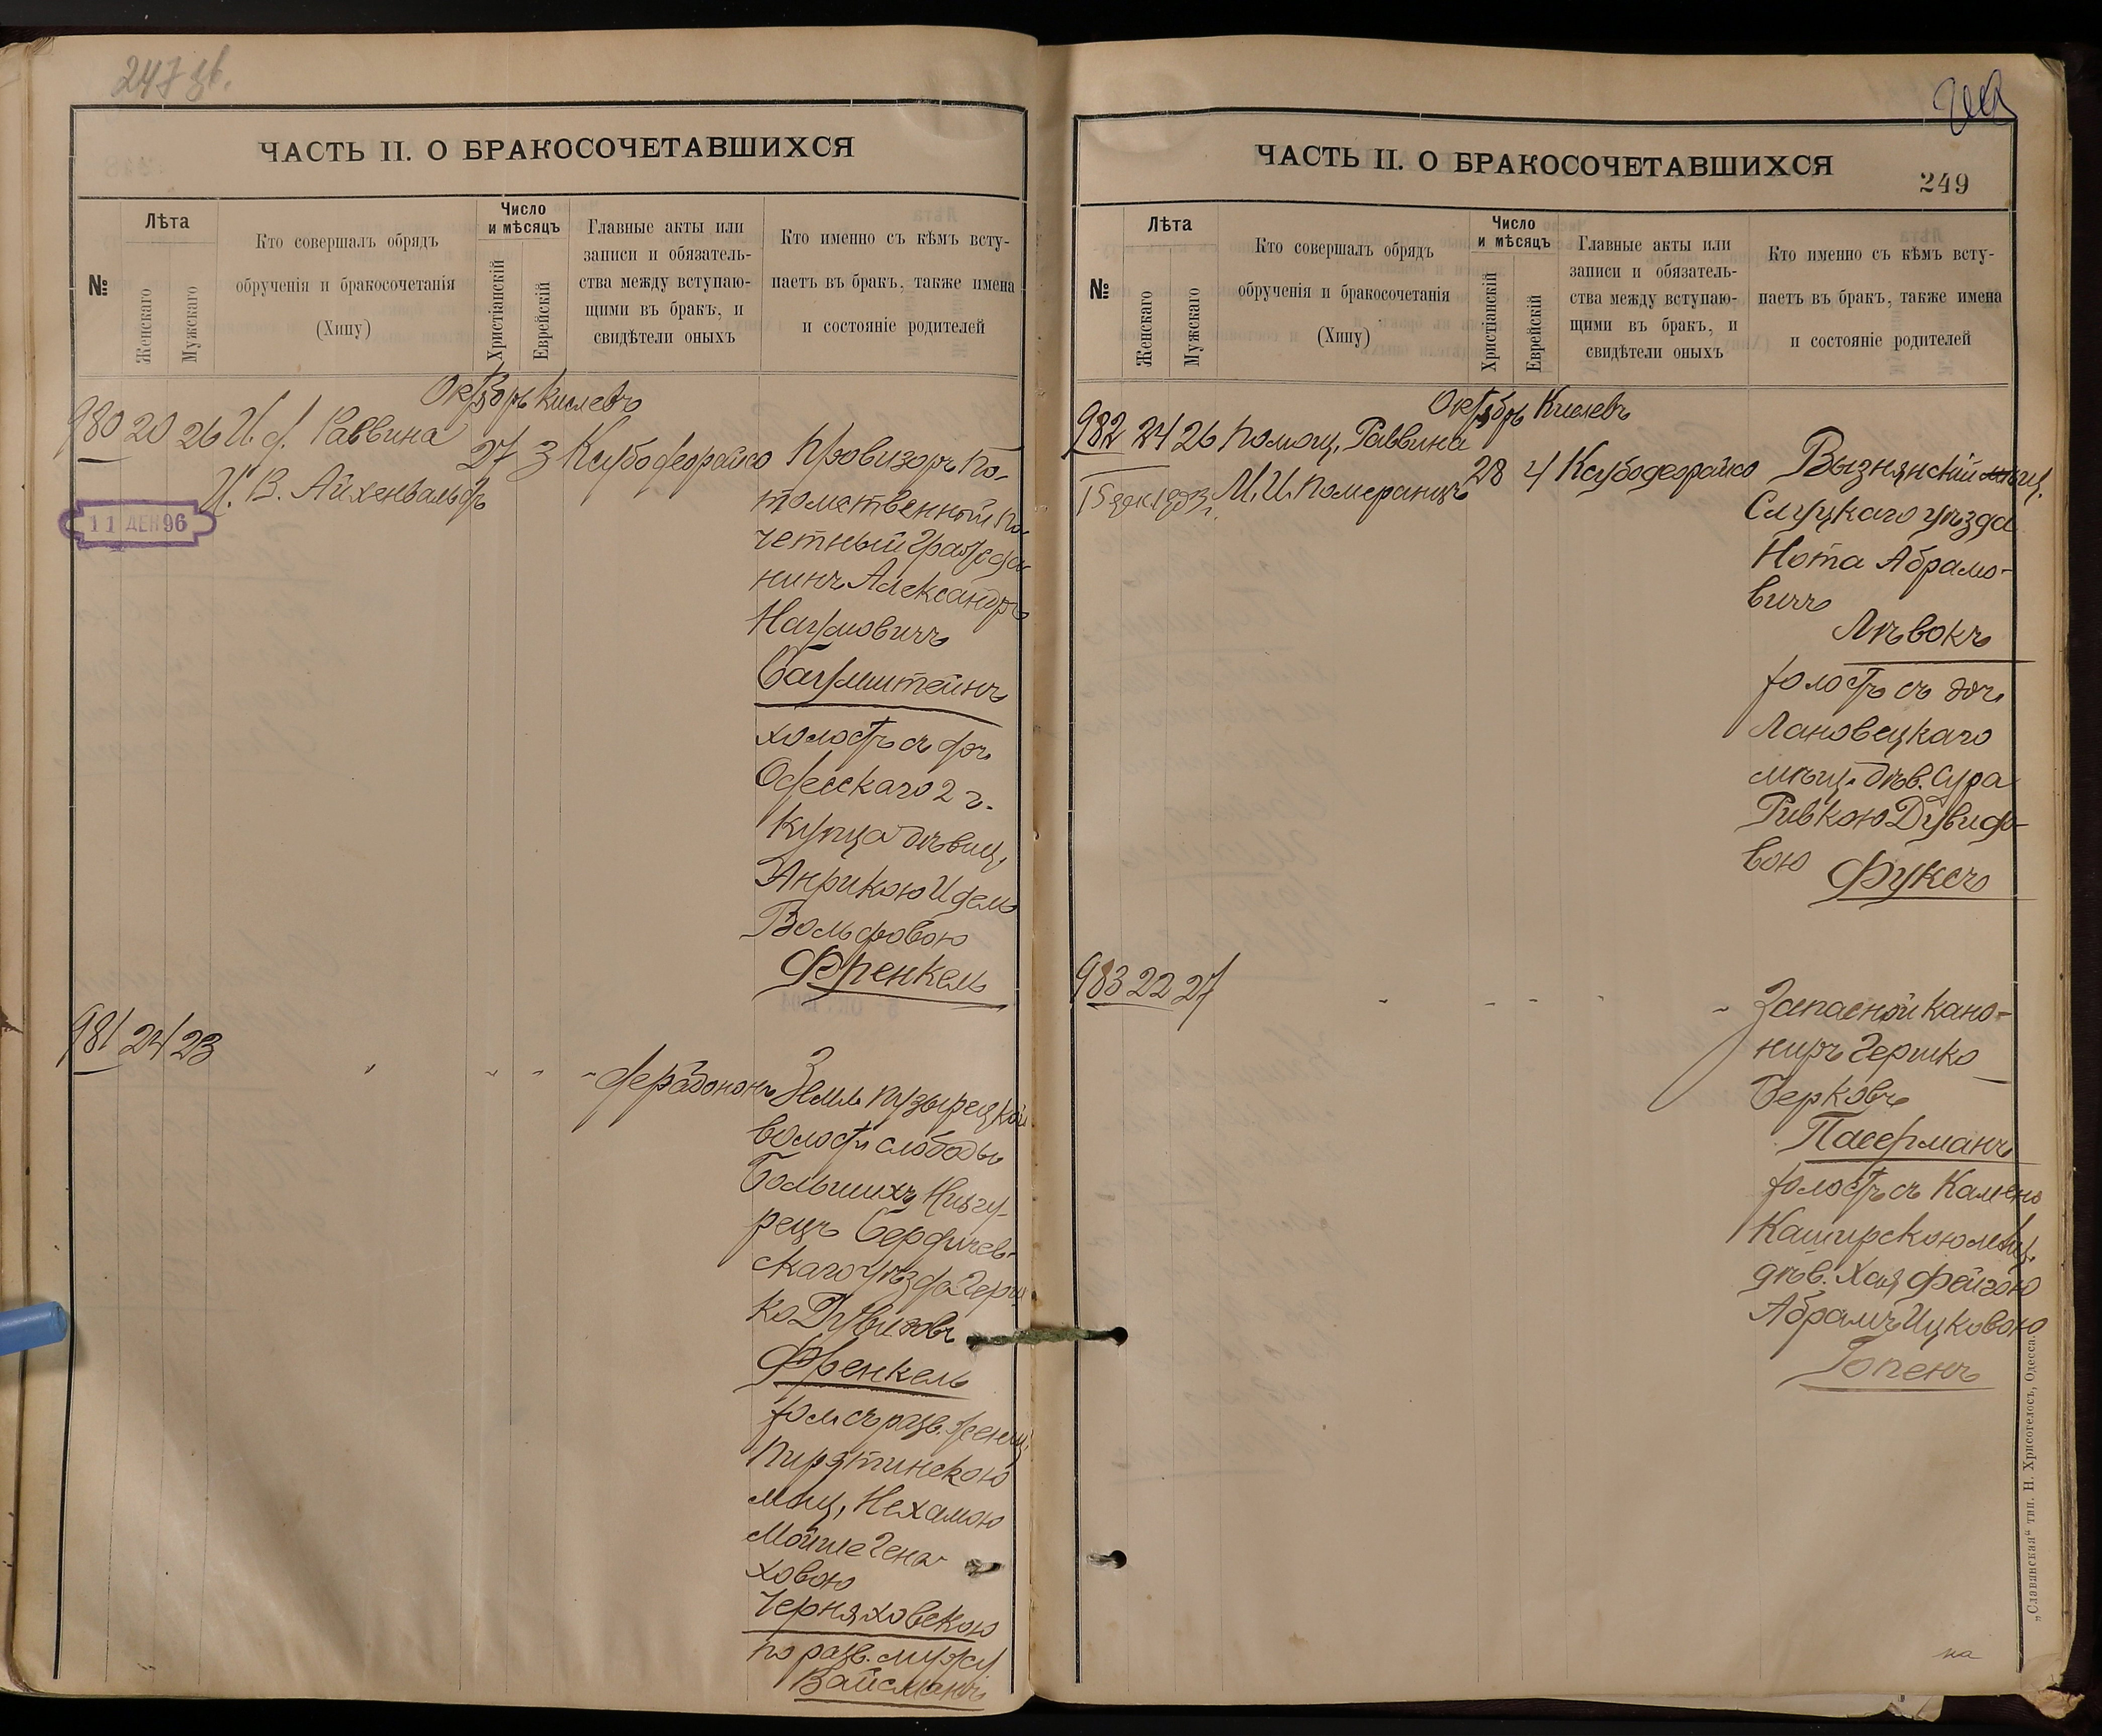 247 зв.
ЧАСТЬ II. О БРАКОСОЧЕТАВШИХСЯ
№
Лѣта
Женскаго
Мужскаго
Кто совершалъ обрядъ
обрученія и бракосочетанія
(Хипу)
Число
и мѣсяцъ
Христіанскій
Еврейскій
Главные акты или
записи и обязатель-
ства между вступаю-
щими въ бракъ, и
свидѣтели оныхъ
Кто именно съ кѣмъ всту-
паетъ въ бракъ, также имена
и состояніе родителей
Октябрь Кислевъ
980 20 26 И. д. Раввина
27 3 Ксубо деорайсо Провизоръ По-
И. В. Айхенвальдъ
11 ДЕК 96
томственный по-
четный гражда
нинъ Александръ
Наумовичъ
Баумштейнъ
холостъ съ доч.
Одесскаго 2 г.
купца дѣвиц.
Энрикою Идель
Вольфовою
Френкель
981 24 23
" " " " дерабононъ Земл. Пузырецкой
волости слободы
Большихъ Низгу-
рецъ Бердичев-
скаго уѣзда Герш
ко Дувидовъ
Френкель
хол. съ разв. женщ.
Пирятинскою
мѣщ. Нехамою
Мойше Гена-
ховою
Черняховскою
по разв. мужу
Вайсманъ
ЧАСТЬ II. О БРАКОСОЧЕТАВШИХСЯ
249
№
Лѣта
Женскаго
Мужскаго
Кто совершалъ обрядъ
обрученія и бракосочетанія
(Хипу)
Число
и мѣсяцъ
Христіанскій
Еврейскій
Главные акты или
записи и обязатель-
ства между вступаю-
щими въ бракъ, и
свидѣтели оныхъ
Кто именно съ кѣмъ всту-
паетъ въ бракъ, также имена
и состояніе родителей
Октябрь Кислевъ
982 24 26 Помощ. Раввина
28 4 Ксубо деорайсо Вызнянскій мѣщ.
15 дек. 1903 г. М. И. Померанцъ
Слуцкаго уѣзда
Нота Абрамо-
вичъ
Лѣвокъ
холостъ съ доч.
Лановецкаго
мѣщ. дѣв. Сура
Ривкою Дувидо-
вою
Фуксъ
983 22 27
" " " " " Запасной кано-
ниръ Гершко
Берковъ
Пасерманъ
холостъ съ Камень
Каширскою мѣщ.
дѣв. Хая Фейгою
Абрамъ Ицковою
Гопенъ
„Славянская" тип. Н. Хрисогелосъ, Одесса.
на